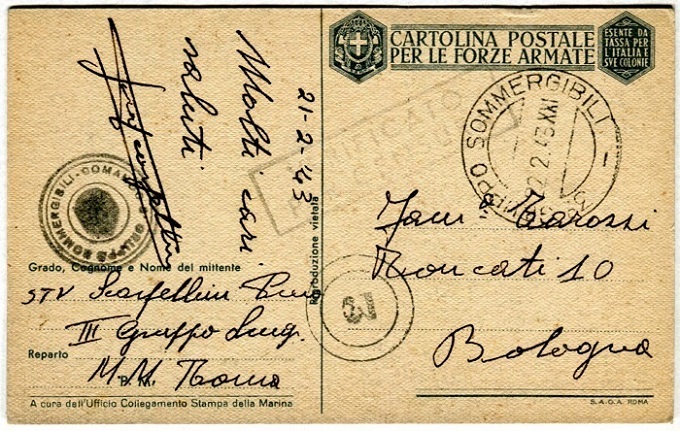 CARTOLINA POSTALE
PER LE FORZE ARMATE
ESENTE DA
TASSA PER
L'ITALIA E
SVE COLONIE
21-2-43
Molti cari
saluti
VERIFICATO
GRUPPO SOMMERGIBILI
22.2.43 XXI
SOMMERGIBILI-COMANDO
GRUPPO
Riproduzione vietata
Marozzi
Roncati 10
Bologna
Grado, Cognome e Nome del mittente
STV Scarfellini
III Gruppo Smg.
Reparto
P. M.
M M Roma
A cura dell'Ufficio Collegamento Stampa della Marina
S.A.G.A. ROMA